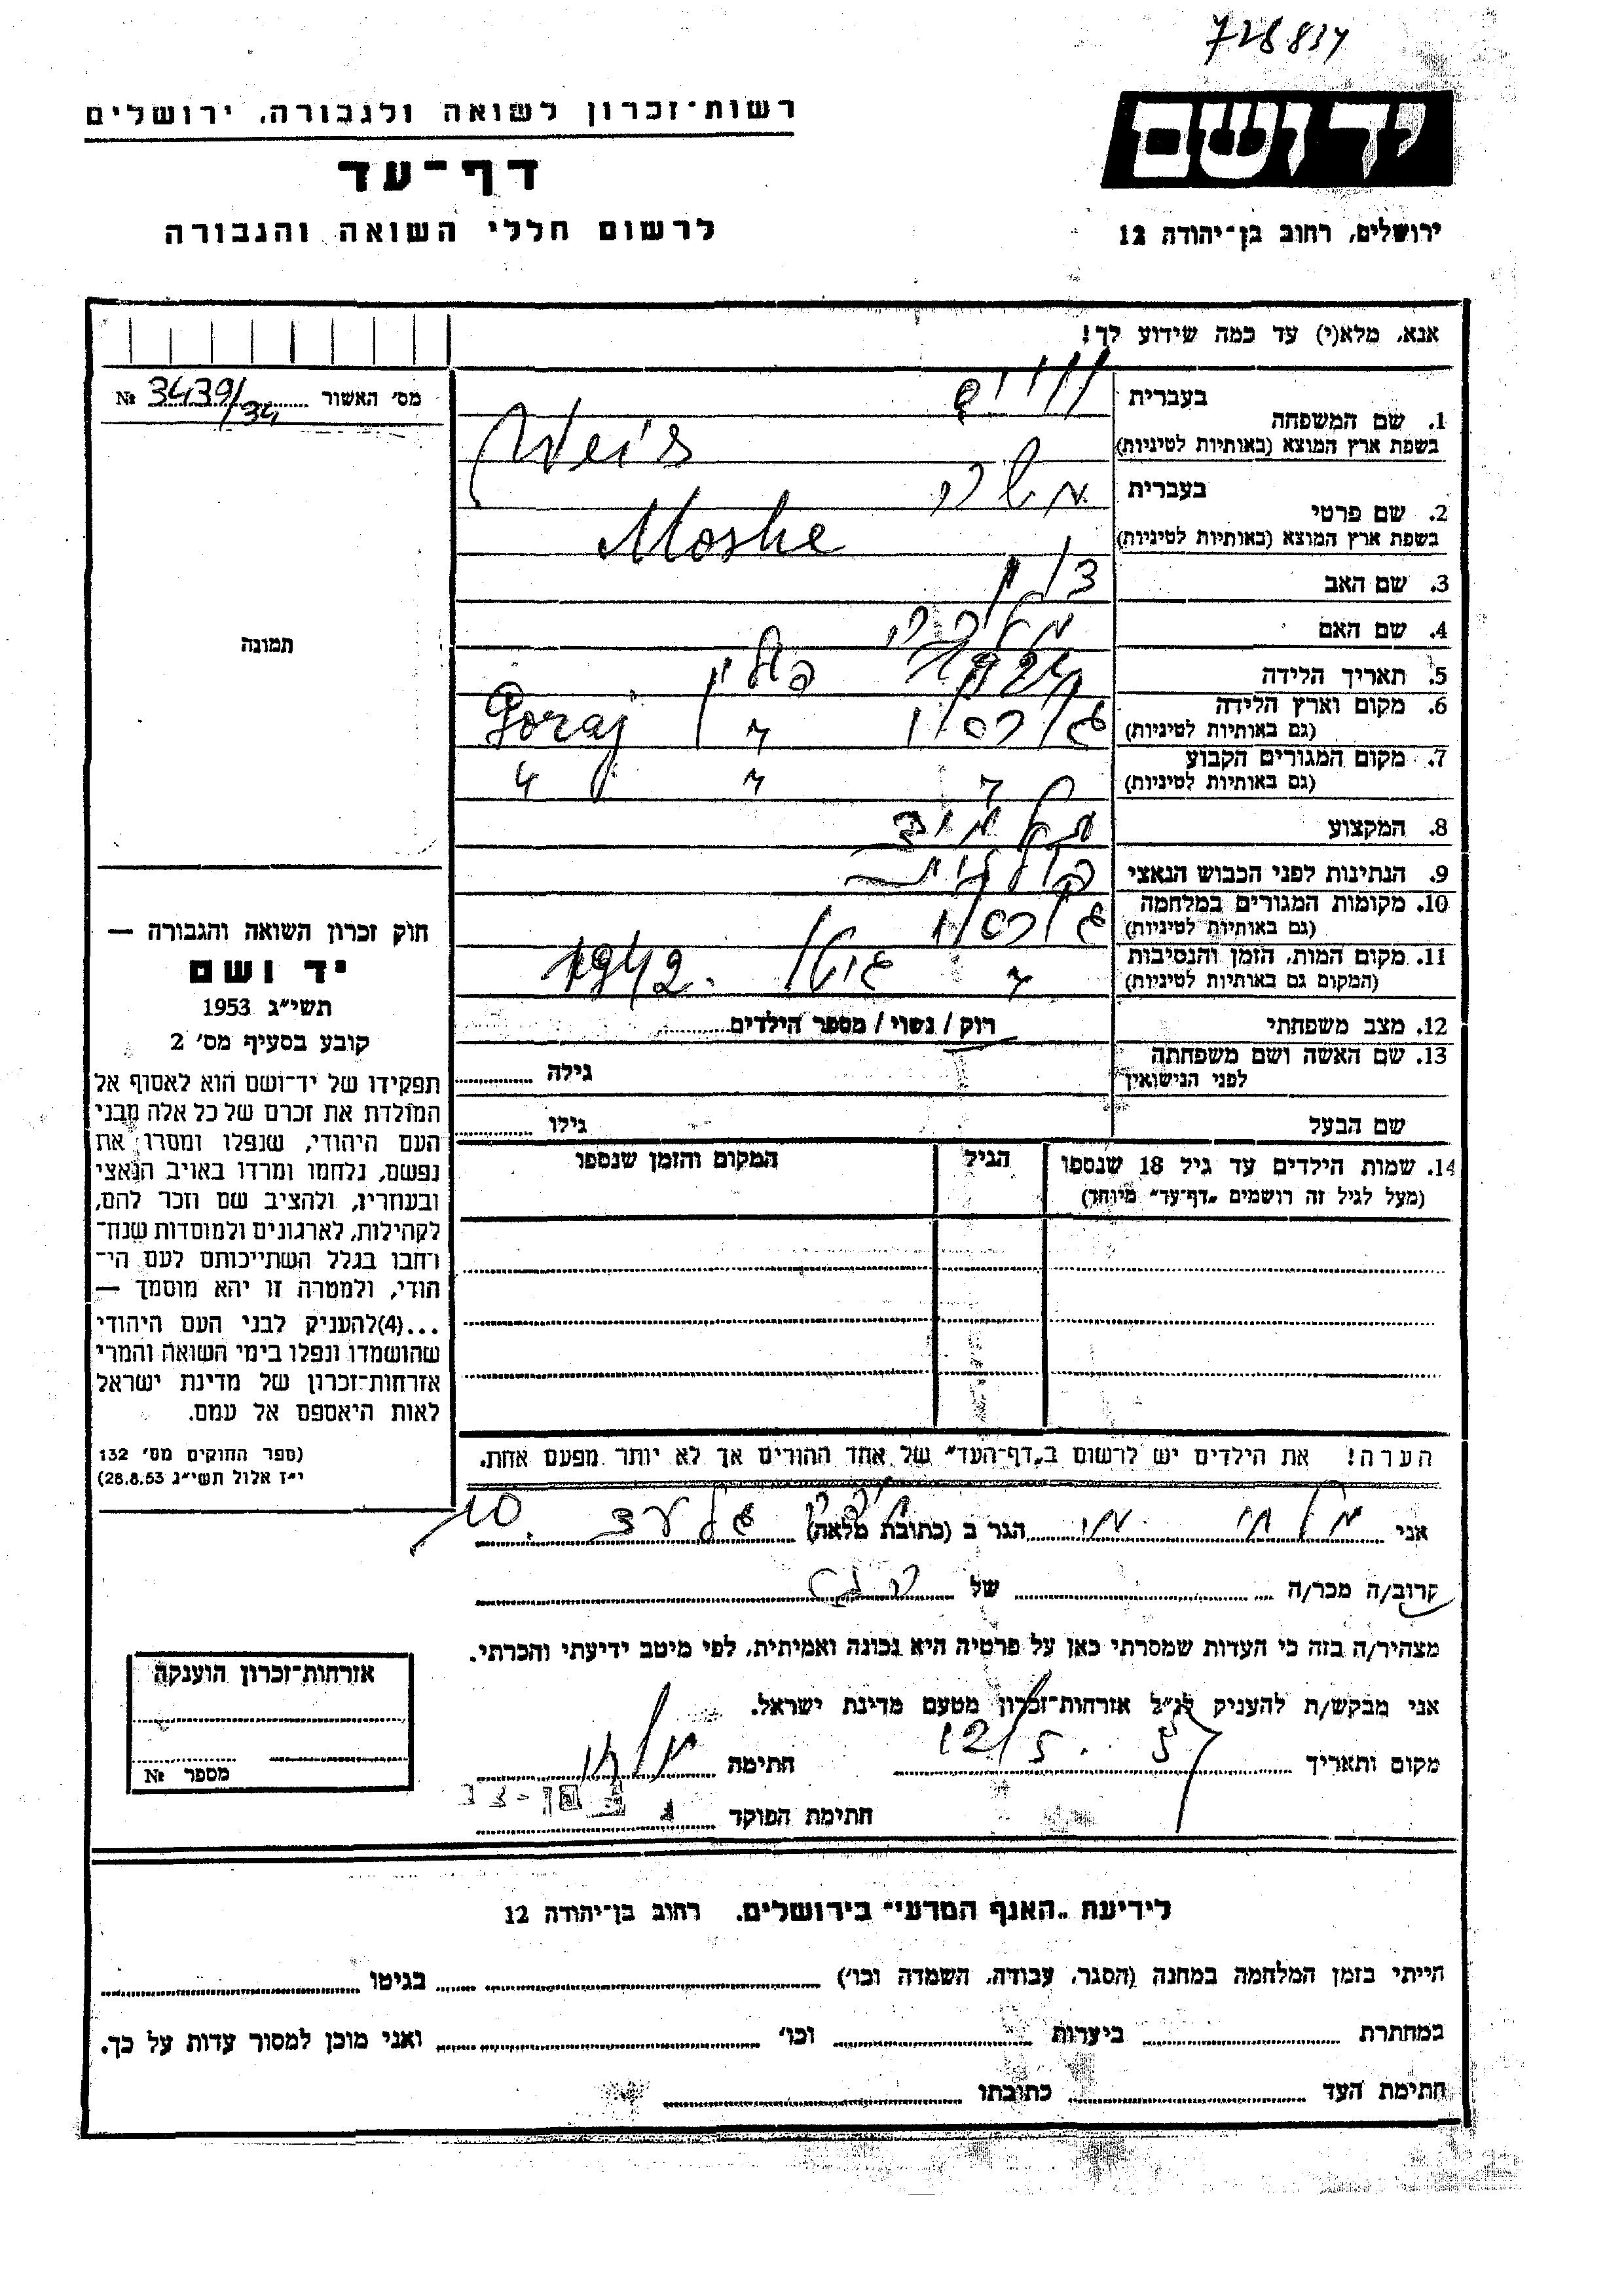 728834
רשות־זכרון לשואה ולגבורה, ירושלים
דף־עד
לרשום חללי השואה והגבורה
ידושם
ירושלים, רחוב בן־יהודה 12
אנא, מלא(י) עד כמה שידוע לך!
מס׳ האשור 3439/34 №
תמונה
חוק זכרון השואה והגבורה —
יד ושם
תשי״ג 1953
קובע בסעיף מס׳ 2
תפקידו של יד־ושם הוא לאסוף אל
המולדת את זכרם של כל אלה מבני
העם היהודי, שנפלו ומסרו את
נפשם, נלחמו ומרדו באויב הנאצי
ובעוזריו, ולהציב שם וזכר להם,
לקהילות, לארגונים ולמוסדות שנח־
רחבו בגלל השתייכותם לעם הי־
הודי, ולמטרה זו יהא מוסמך —
...(4)להעניק לבני העם היהודי
שהושמדו ונפלו בימי השואה והמרי
אזרחות־זכרון של מדינת ישראל
לאות היאספם אל עמם.
(ספר החוקים מס׳ 132
י״ז אלול תשי״ג 28.8.53)
1. שם המשפחה
בעברית ווייס
בשפת ארץ המוצא (באותיות לטיניות) Weis
2. שם פרטי
בעברית משה
בשפת ארץ המוצא (באותיות לטיניות) Moshe
3. שם האב
4. שם האם מלכה
5. תאריך הלידה
6. מקום וארץ הלידה
(גם באותיות לטיניות) פולין Goraj
7. מקום המגורים הקבוע
(גם באותיות לטיניות) " " "
8. המקצוע תלמיד
9. הנתינות לפני הכבוש הנאצי פולנית
10. מקומות המגורים במלחמה
(גם באותיות לטיניות)
11. מקום המות, הזמן והנסיבות
(המקום גם באותיות לטיניות) " גיטו 1942.
12. מצב משפחתי רוק / נשוי / מספר הילדים
13. שם האשה ושם משפחתה
לפני הנישואין גילה
שם הבעל גילו
14. שמות הילדים עד גיל 18 שנספו הגיל המקום והזמן שנספו
(מעל לגיל זה רושמים „דף־עד״ מיוחד)
הערה! את הילדים יש לרשום ב„דף־העד״ של אחד ההורים אך לא יותר מפעם אחת.
אני הגר ב (כתובת מלאה)
קרוב/ה מכר/ה של
מצהיר/ה בזה כי העדות שמסרתי כאן על פרטיה היא נכונה ואמיתית, לפי מיטב ידיעתי והכרתי.
אני מבקש/ת להעניק לנ״ל אזרחות־זכרון מטעם מדינת ישראל.
מקום ותאריך 12/5.57 חתימה
חתימת הפוקד
אזרחות־זכרון הוענקה
מספר №
לידיעת „האגף המדעי״ בירושלים. רחוב בן־יהודה 12
הייתי בזמן המלחמה במחנה (הסגר, עבודה, השמדה וכו׳) בגיטו
במחתרת ביערות וכו׳ ואני מוכן למסור עדות על כך.
חתימת העד כתובתו